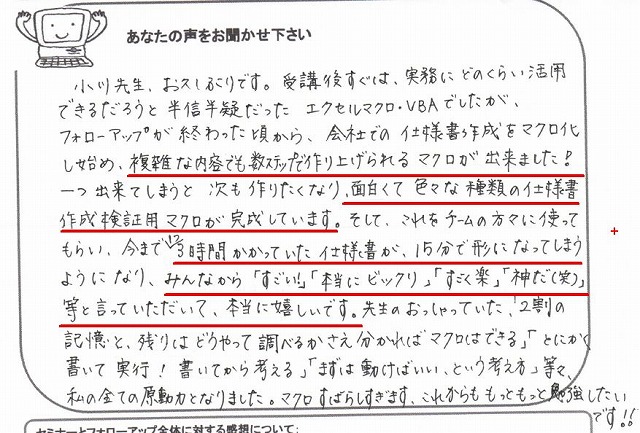 あなたの声をお聞かせ下さい
小川先生、お久しぶりです。受講後すぐは、実務にどのくらい活用
できるだろうと半信半疑だった エクセルマクロ・VBAでしたが、
フォローアップが終わった頃から、会社での仕様書作成をマクロ化
し始め、複雑な内容でも数ステップで作り上げられるマクロが出来ました!
一つ出来てしまうと次も作りたくなり、面白くて色々な種類の仕様書
作成検証用マクロが完成しています。そして、これをチームの方々に使って
もらい、今まで3時間かかっていた仕様書が、15分で形になってしまう
ようになり、みんなから「すごい!」「本当にビックリ」「すごく楽」「神だ(笑)」
等と言っていただいて、本当に嬉しいです。先生のおっしゃっていた、「2割の
記憶と、残りはどうやって調べるかさえ分かればマクロはできる」「とにかく
書いて実行!書いてから考える」「まずは動けばいい、という考え方」等々、
私の全ての原動力となりました。マクロすばらしすぎます、これからももっともっと勉強したい
です!!
セミナーとフォローアップ全体に対する感想について: